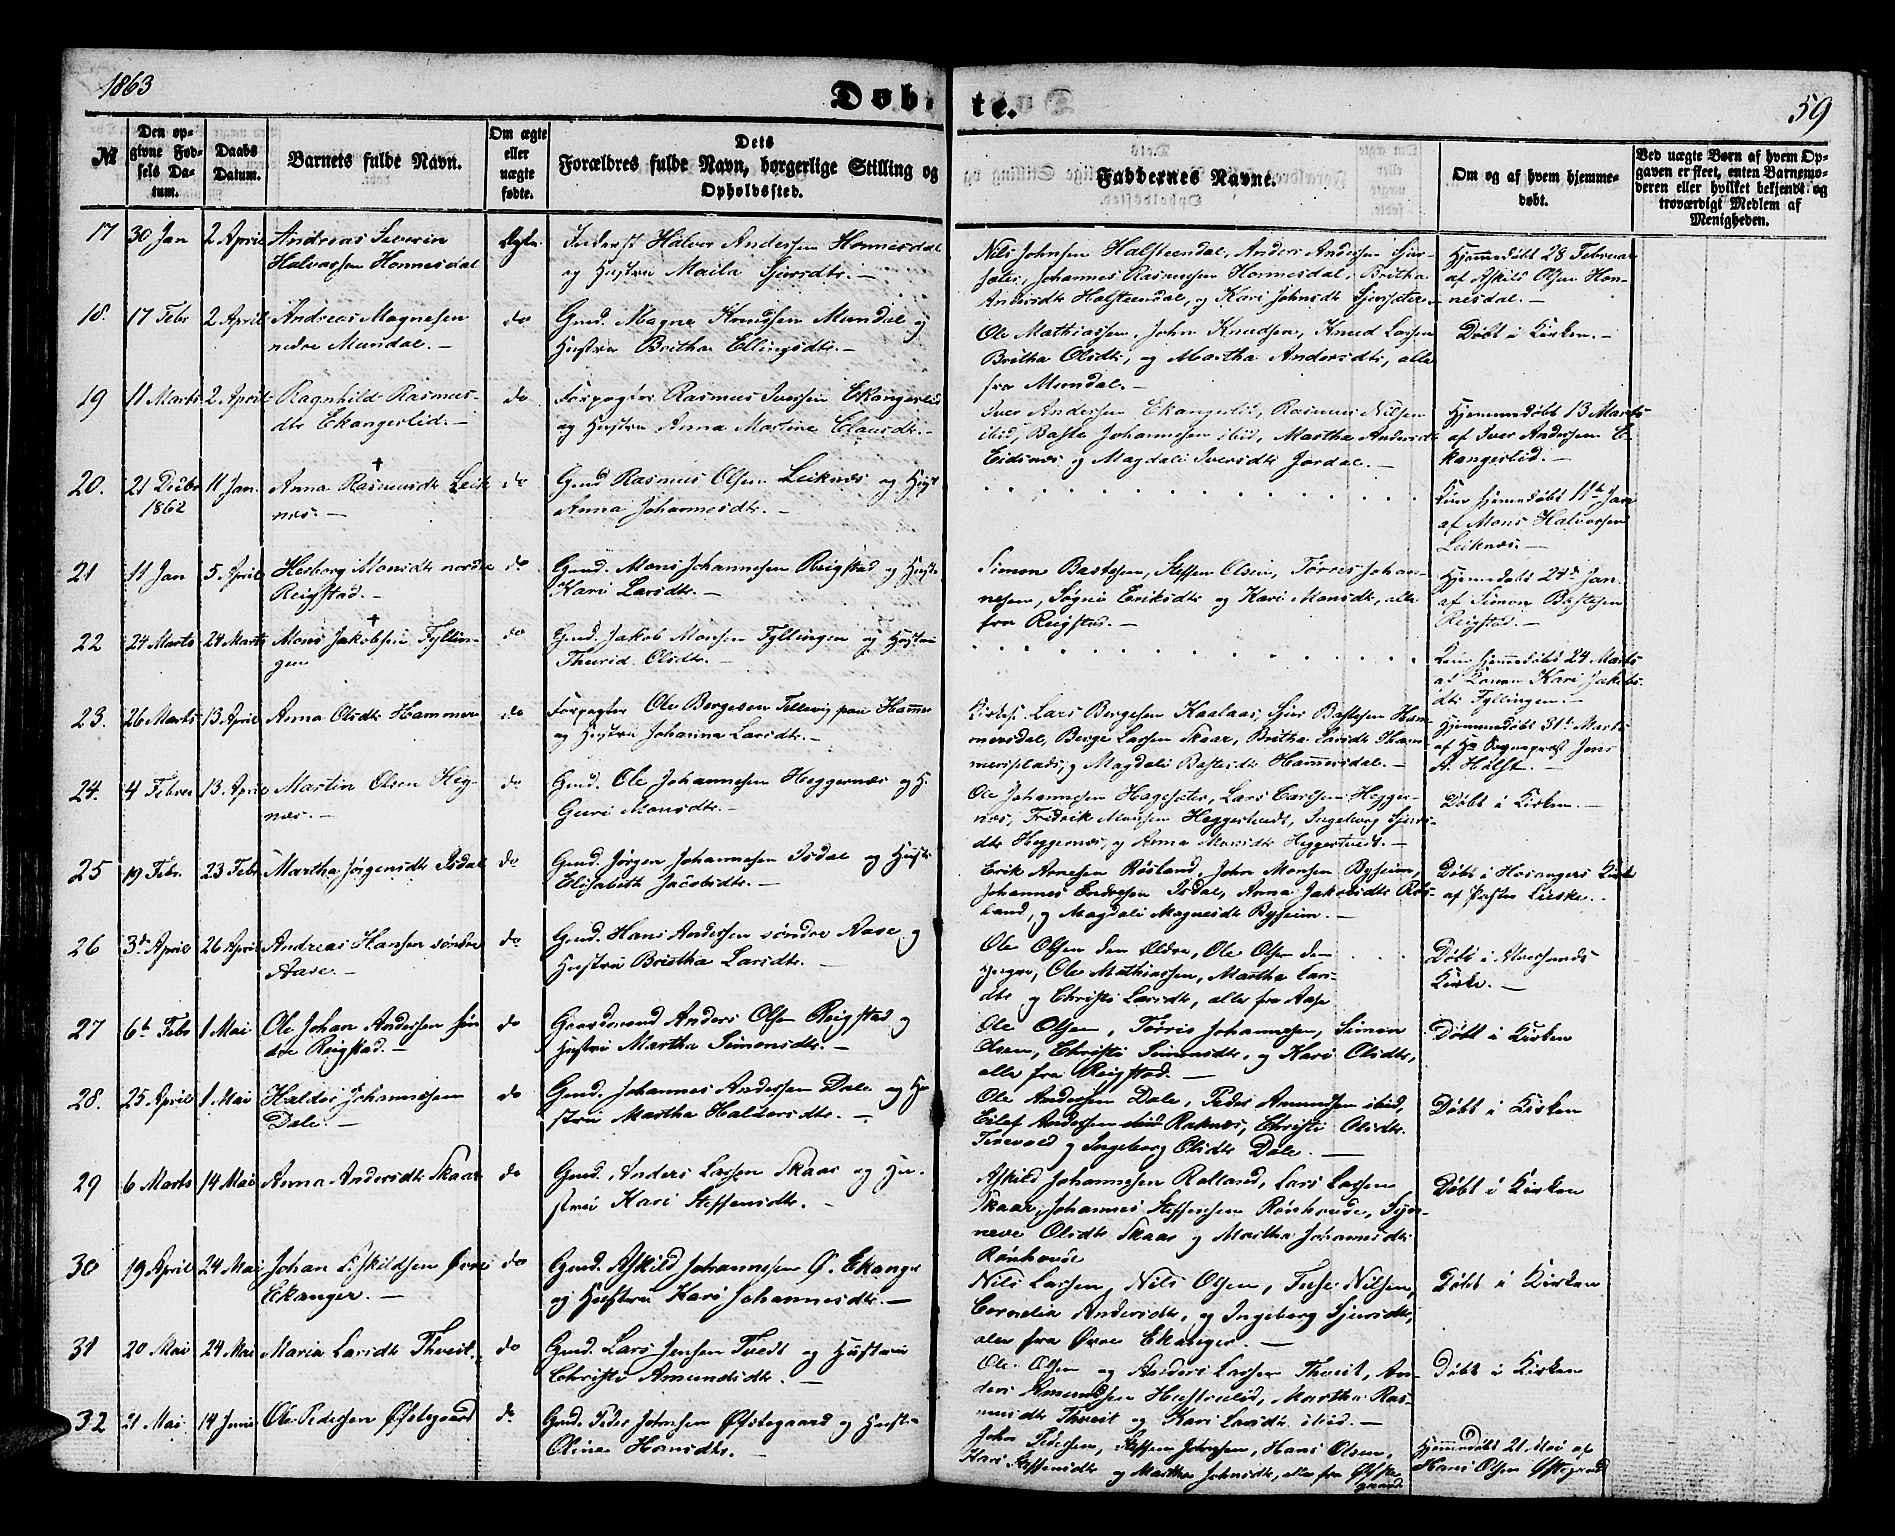 1863
Døbte.
59
№
Den opgivne Fødsels Datum.
Daabs Datum.
Barnets fulde Navn.
Om ægte eller uægte fødte.
Dets Forældres fulde Navn, borgerlige Stilling og Opholdssted.
Faddernes Navne.
Om og af hvem hjemmedøbt.
Ved uægte Børn af hvem Opgaven er skeet, enten Barnemoderen eller hvilket bekjendt og troværdigt Medlem af Menigheden.
17 30 Jan 2 April Andreas Severin Ægte Inderst Halvor Andersen Honnesdal
Halvorsen Honnesdal og Hustru Maila Sjursdtr. —
Nils Johnsen Halsteendal, Anders Andersen Sjur-
sæter, Johannes Rasmussen Honnesdal, Britha
Andersdtr Halsteendal, og Kari Johnsdtr Sjursæter. —
Hjemmedöbt 28 Februar
af Askild Olsen Hon-
nesdal. —
18. 17 Febr 2 April Andreas Magnesen do Gmd. Magne Knudsen Mundal og
nedre Mundal. — Hustru Britha Ellingsdtr. —
Ole Mathiassen, John Knudsen, Knud Larsen
Britha Olsdtr, og Martha Andersdtr, alle
fra Mundal. —
Döbt i Kirken. —
19 11 Marts 2 April Ragnhild Rasmus- do Forpagter Rasmus Iversen Ekangerlid
dtr Ekangerlid. — og Hustru Anna Martine Clausdtr. —
Iver Andersen Ekangerlid, Rasmus Nilsen
ibid, Baste Johannesen ibid, Martha Andersdtr
Eidsnes og Magdali Iversdtr Jordal. —
Hjemmedöbt 13 Marts
af Iver Andersen E-
kangerlid. —
20. 21 Decbr 11 Jan. Anna Rasmusdtr Leik- do Gmd Rasmus Olsen Leiknes og Hust
1862 † nes. — Anna Johannesdtr. —
Kun hjemmedöbt 11te Jan
af Mons Halvorsen
Leiknes. —
21 11 Jan 5 April Herborg Monsdtr nordre do Gmd. Mons Johannesen Reigstad og Hustr
Reigstad. — Kari Larsdtr. —
Simon Bastesen, Steffen Olsen, Torris Johan-
nesen, Søgni Eriksdtr og Kari Monsdtr, alle
fra Reigstad. —
Hjemmedöbt 24de Jan.
af Simon Bastesen
Reigstad. —
22 24 Marts 24 Marts Mons Jakobsen Fyllin- do Gmd. Jakob Monsen Fyllingen og Hustru
† gen Thurid Olsdtr. —
Kun hjemmedöbt 24 Marts
af Konen Kari Jakobs-
dtr Fyllingen. —
23. 26 Marts 13 April Anna Olsdtr Hammer do Forpagter Ole Bergesen Tellevig paa Hammer
og Hustru Johanna Larsdtr. —
Lars Bergesen Kaalaas, Sjur Bastesen Ham-
mersdal, Berge Larsen Skaar, Britha Larsdtr Ham-
mersplads, og Magdali Bastesdtr Hammersdal. —
Hjemmedöbt 31te Marts
af Hr Sognepræst Jens
A. Holst. —
24. 4 Febru 13 April Martin Olsen Heg- do Gmd. Ole Johannesen Heggernæs og H.
næs. — Guri Monsdtr. —
Ole Johannesen Hagesæter, Lars Carlsen Hegger-
næs, Fredrik Monsen Heggertvedt, Ingeborg Sjurs-
dtr Heggernæs, og Anna Monsdtr Heggertvedt. —
Döbt i Kirken. —
25 19 Febr. 23 Febr Martha Jörgensdtr Isdal do Gmd. Jörgen Johannesen Isdal og Hustr
Elisabeth Jacobsdtr. —
Erik Arnesen Rösland, John Monsen Byseim,
Johannes Endresen Isdal, Anna Jakobsdtr Rös-
land, og Magdali Magnesdtr Byseim. —
Döbt i Hosangers Kirke
af Pastor Lieske.
26 3de April 26 April Andreas Hansen söndre do Gmd. Hans Andersen söndre Aase og
Aase. — Hustru Britha Larsdtr. —
Ole Olsen den ældre, Ole Olsen den
yngre, Ole Mathiassen, Martha Lars-
dtr og Christi Larsdtr, alle fra Aase
Döbt i Alversunds
Kirke. —
27 6te Febr 1 Mai Ole Johan Andersen sön- do Gaardmand Anders Olsen Reigstad og
dre Reigstad. — Hustru Martha Simonsdtr. —
Ole Olsen, Torris Johannesen, Simon
Olsen, Christi Simonsdtr, og Kari Olsdtr,
alle fra Reigstad. —
Döbt i Kirken
28. 25 April 1 Mai Haldor Johannesen do Gmd. Johannes Andersen Dale og Hu-
Dale. — stru Martha Haldorsdtr. —
Ole Andersen Dale, Peder Amundsen ibid,
Eilef Andersen Raknæs, Christi Olsdtr
og Ingeborg Olsdtr Dale. —
Döbt i Kirken
29 6 Marts 14 Mai Anna Andersdtr Skaar do Gmd. Anders Larsen Skaar og Hu-
stru Kari Steffensdtr. —
Askild Johannesen Rolland, Lars Larsen
Skaar, Johannes Steffensen Rönhovde, Syn-
neve Olsdtr Skaar og Martha Johannesdtr
Rönhovde
Döbt i Kirken
30 19 April 24 Mai Johan Askildsen Övre do Gmd. Askild Johannesen Ø. Ekanger
Ekanger. — og Hustru Kari Johannesdtr. —
Nils Larsen, Nils Olsen, Nilsen,
Cornelia Andersdtr, og Ingeborg Sjursdtr,
alle fra Øvre Ekanger. —
Döbt i Kirken
31 20 Mai 24 Mai Maria Larsdtr Thveit. do Gmd. Lars Jensen Tvedt og Hustru
Christi Amundsdtr. —
Ole Olsen og Anders Larsen Thveit, An-
ders Amundsen Hustvelid, Martha Ras-
musdtr Thveit og Kari Larsdtr ibid. —
Döbt i Kirken
32 21 Mai 14 Juni Ole Pedersen Øfstegaard do Gmd. Peder Johnsen Øfstegaard og Hustr
Oline Hansdtr. —
John Pedersen, Steffen Johnsen, Hans Olsen,
Kari Steffensdtr og Martha Johnsdtr, alle fra Øfste-
gaard.
Hjemmedöbt 21 Mai af
Hans Olsen Øfstegaard